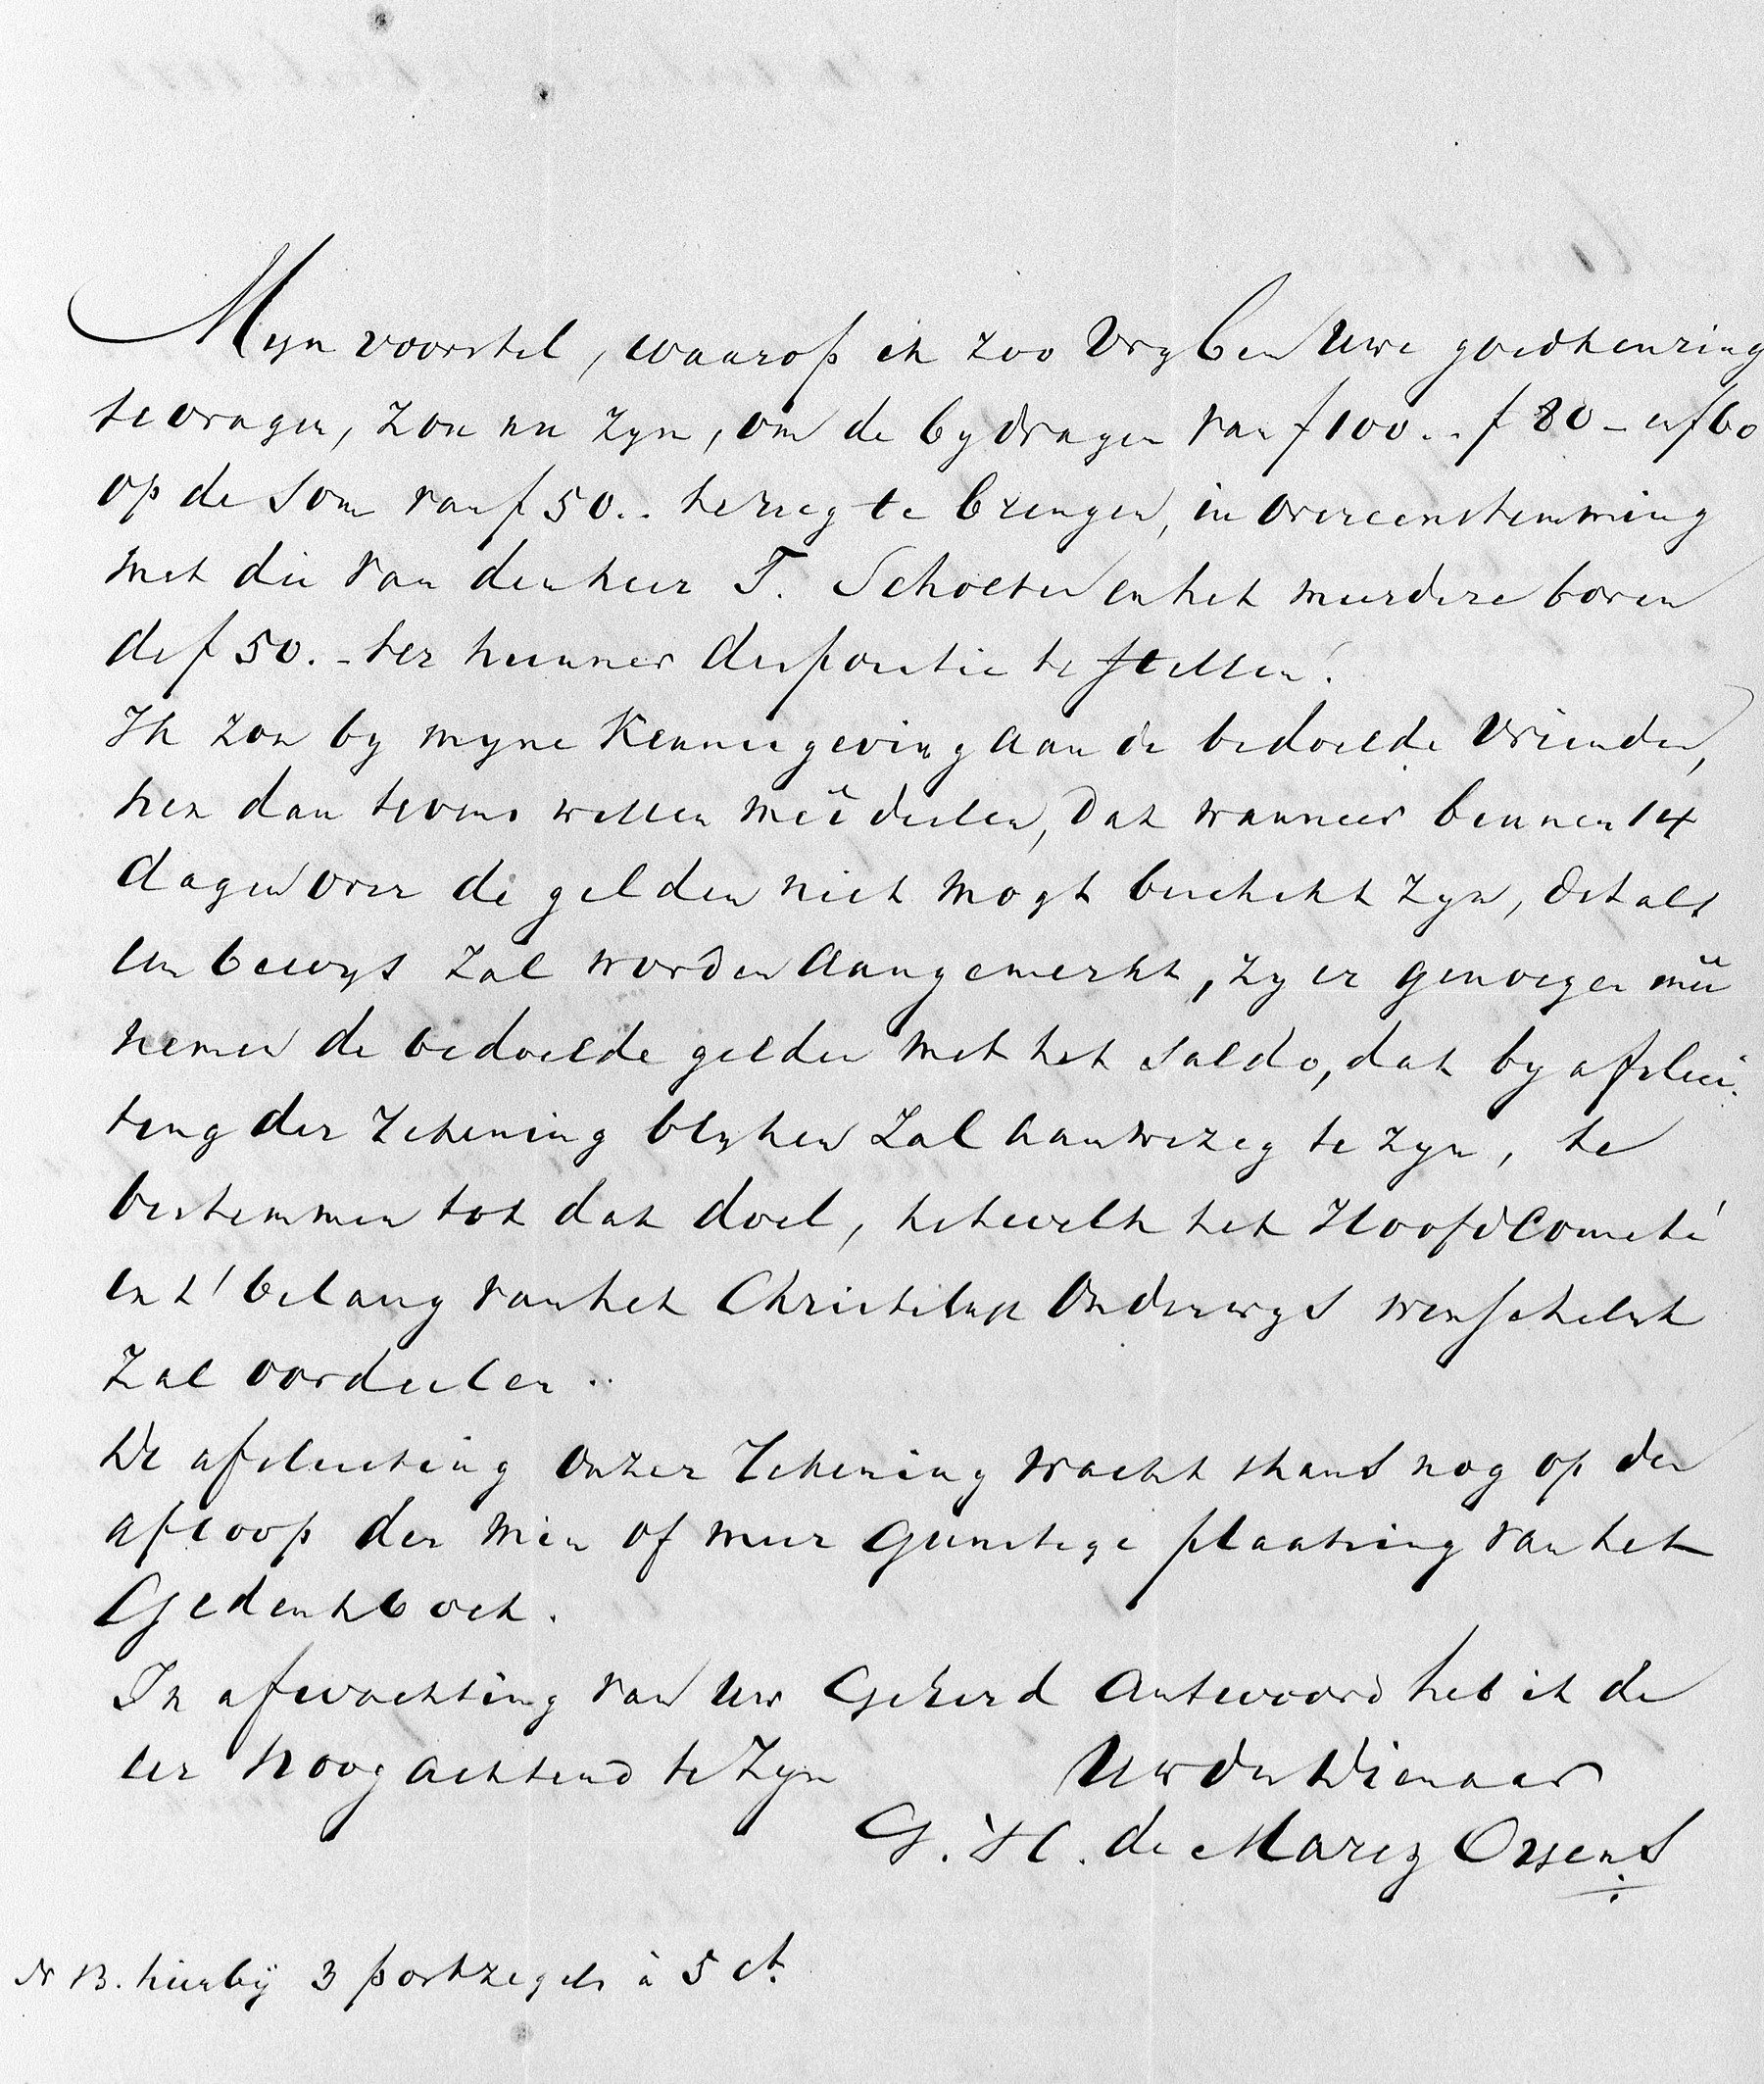 Myn voorstel, waarop ik zoo vry ben Uwe goedkeuring
te vragen, zou nu zyn, om de bydragen van f 100.- f 80 - en f 60
op de som van f 50.- terug te brengen, in overeenstemming
met die van den heer T. Scholten en het meerdere boven
de f 50.- ter hunner dispositie te stellen.
Ik zou by myne Kennisgeving aan de bedoelde vrienden,
hen dan tevens willen meêdeelen, dat wanneer binnen 14
dagen over de gelden niet mogt beschikt zyn, dit als
een bewys zal worden aangemerkt, zy er genoegen meê
nemen de bedoelde gelden met het saldo, dat by afslui-
ting der rekening blyken zal aanwezig te zyn, te
bestemmen tot dat doel, hetwelk het Hoofd Comité
in 't belang van het Christelyk Onderwys wenschelyk
zal oordeelen..
De afsluiting onzer rekening wacht thans nog op den
afloop der min of meer gunstige plaatsing van het
Gedenkboek.
In afwachting van Uw Geëerd Antwoord heb ik de
eer hoogachtend te zyn Uw Dw Dienaar
G. H. de Marez Oyens
NB. hierbÿ 3 portzegels à 5 ct.